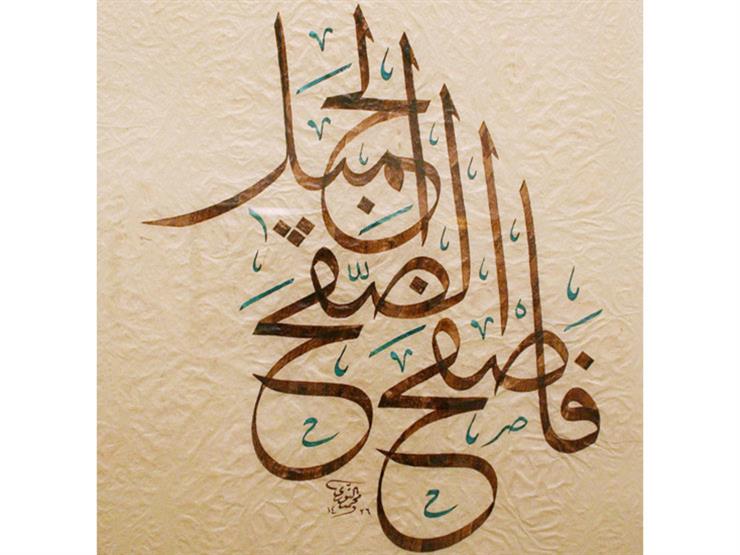 فاصفح
الصّفح
الجميل
١٤٢٦